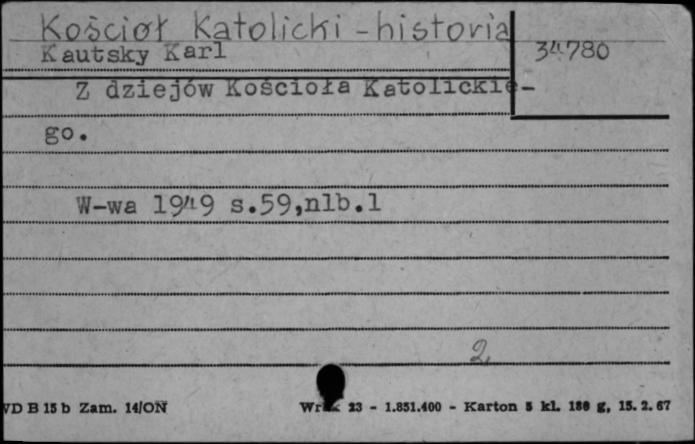 Kościół Katolicki - historia
Kautsky Karl
34780
Z dziejów Kościoła Katolickie-
go.
W-wa 1949 s.59,nlb.1
2
VD B 15 b Zam. 14/ON
23 - 1.851.400 - Karton 5 kl. 180 g, 15. 2. 67